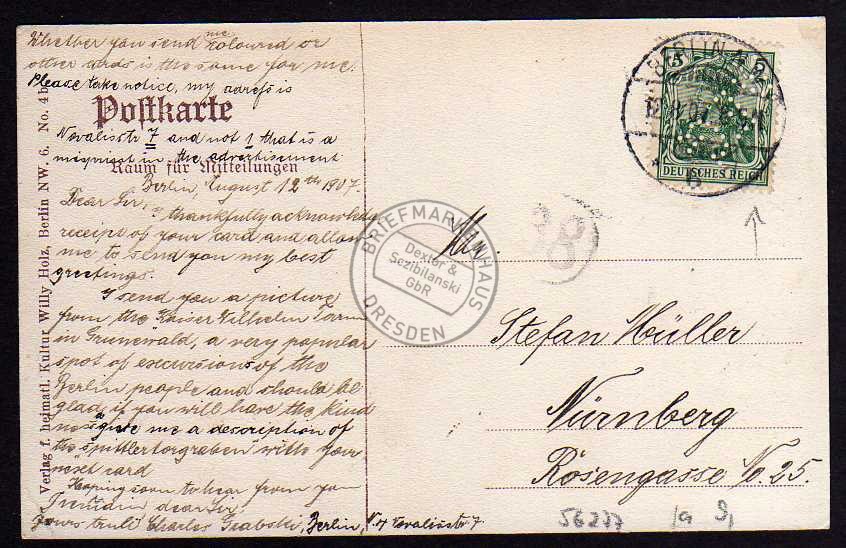 Whether you send me coloured or
other cards is the same for me.
Please take notice, my adress is
Postkarte
Novalisstr 7 and not 1 that is a
misprint in the advertisement
Raum für Mitteilungen
Berlin, August 12th 1907.
Dear Sir,
I thankfully acknowledge
receipt of your card and allow
me to send you my best
greetings.
I send you a picture
from the Kaiser Wilhelm Turm
in Grunewald, a very popular
spot of excursions of the
Berlin people and should be
glad, if you will have the kind
ness give me a description of
the spittlertorgraben with your
next card
Hoping soon to hear from you
I remain dear Sir
Yours truli Charles Grabski, Berlin, N.4 Novalisstr 7
Verlag f. heimatl. Kultur Willy Holz, Berlin NW. 6. No. 4b
BERLIN
5 5
DEUTSCHES REICH
38
BRIEFMARKENHAUS
Dextor &
Sezibilanski
GbR
DRESDEN
Stefan Müller
Nürnberg
Rosengasse No. 25.
56237